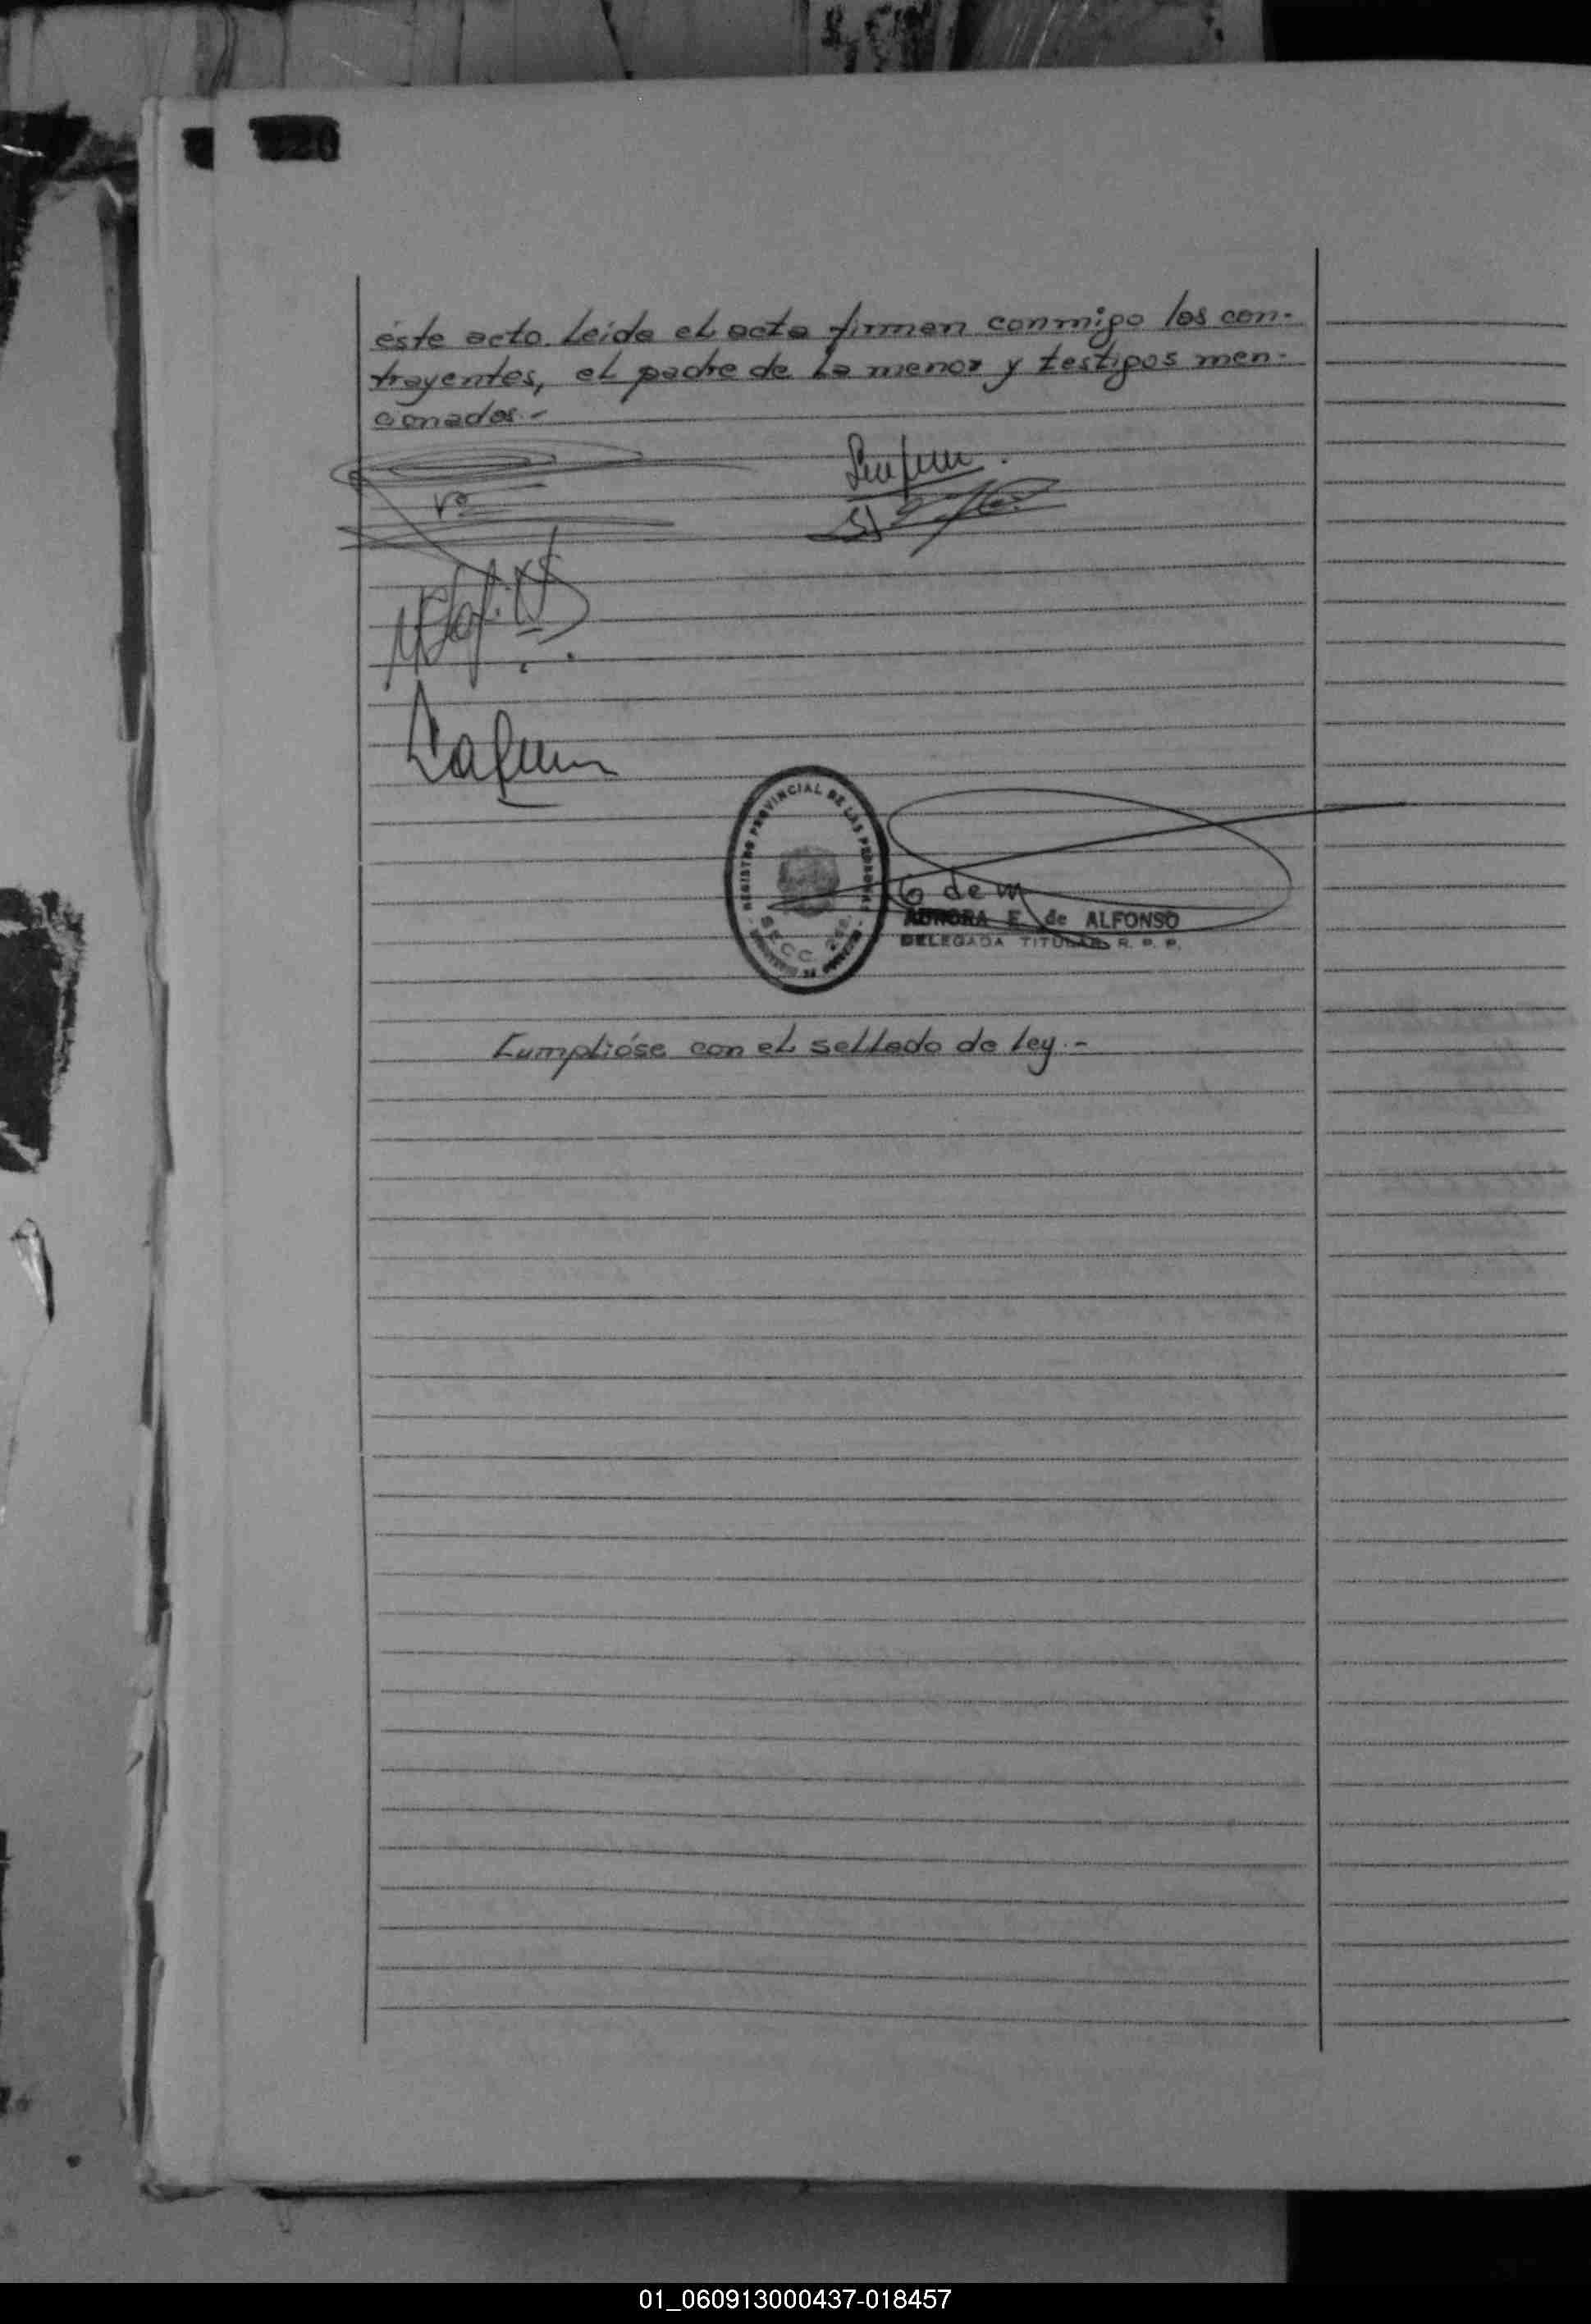 éste acto. Leída el acta firman conmigo los con-
trayentes, el padre de la menor y testigos men-
cionados.-
REGISTRO PROVINCIAL DE LAS PERSONAS
SECC.
AURORA E. de ALFONSO
DELEGADA TITULAR R. P. P.
Cumplióse con el sellado de ley.-
01_060913000437-018457